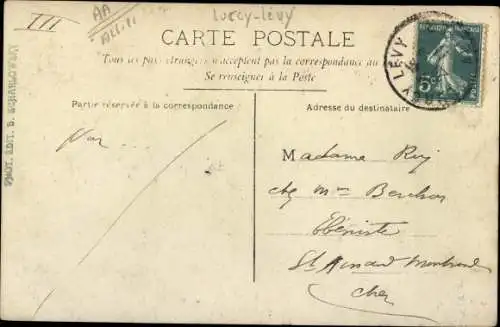 III
AA
Lurcy-Lévy
CARTE POSTALE
Tous les pays étrangers n'acceptent pas la correspondance au
Se renseigner à la Poste
Partie réservée à la correspondance
Adresse du destinataire
LÉVY
RÉPUBLIQUE FRANÇAISE
5c
POSTES
PHOT. EDIT. B. SCHARLOWSKY
Madame
chez Mme
Ébéniste
St Amand Montrond
Cher